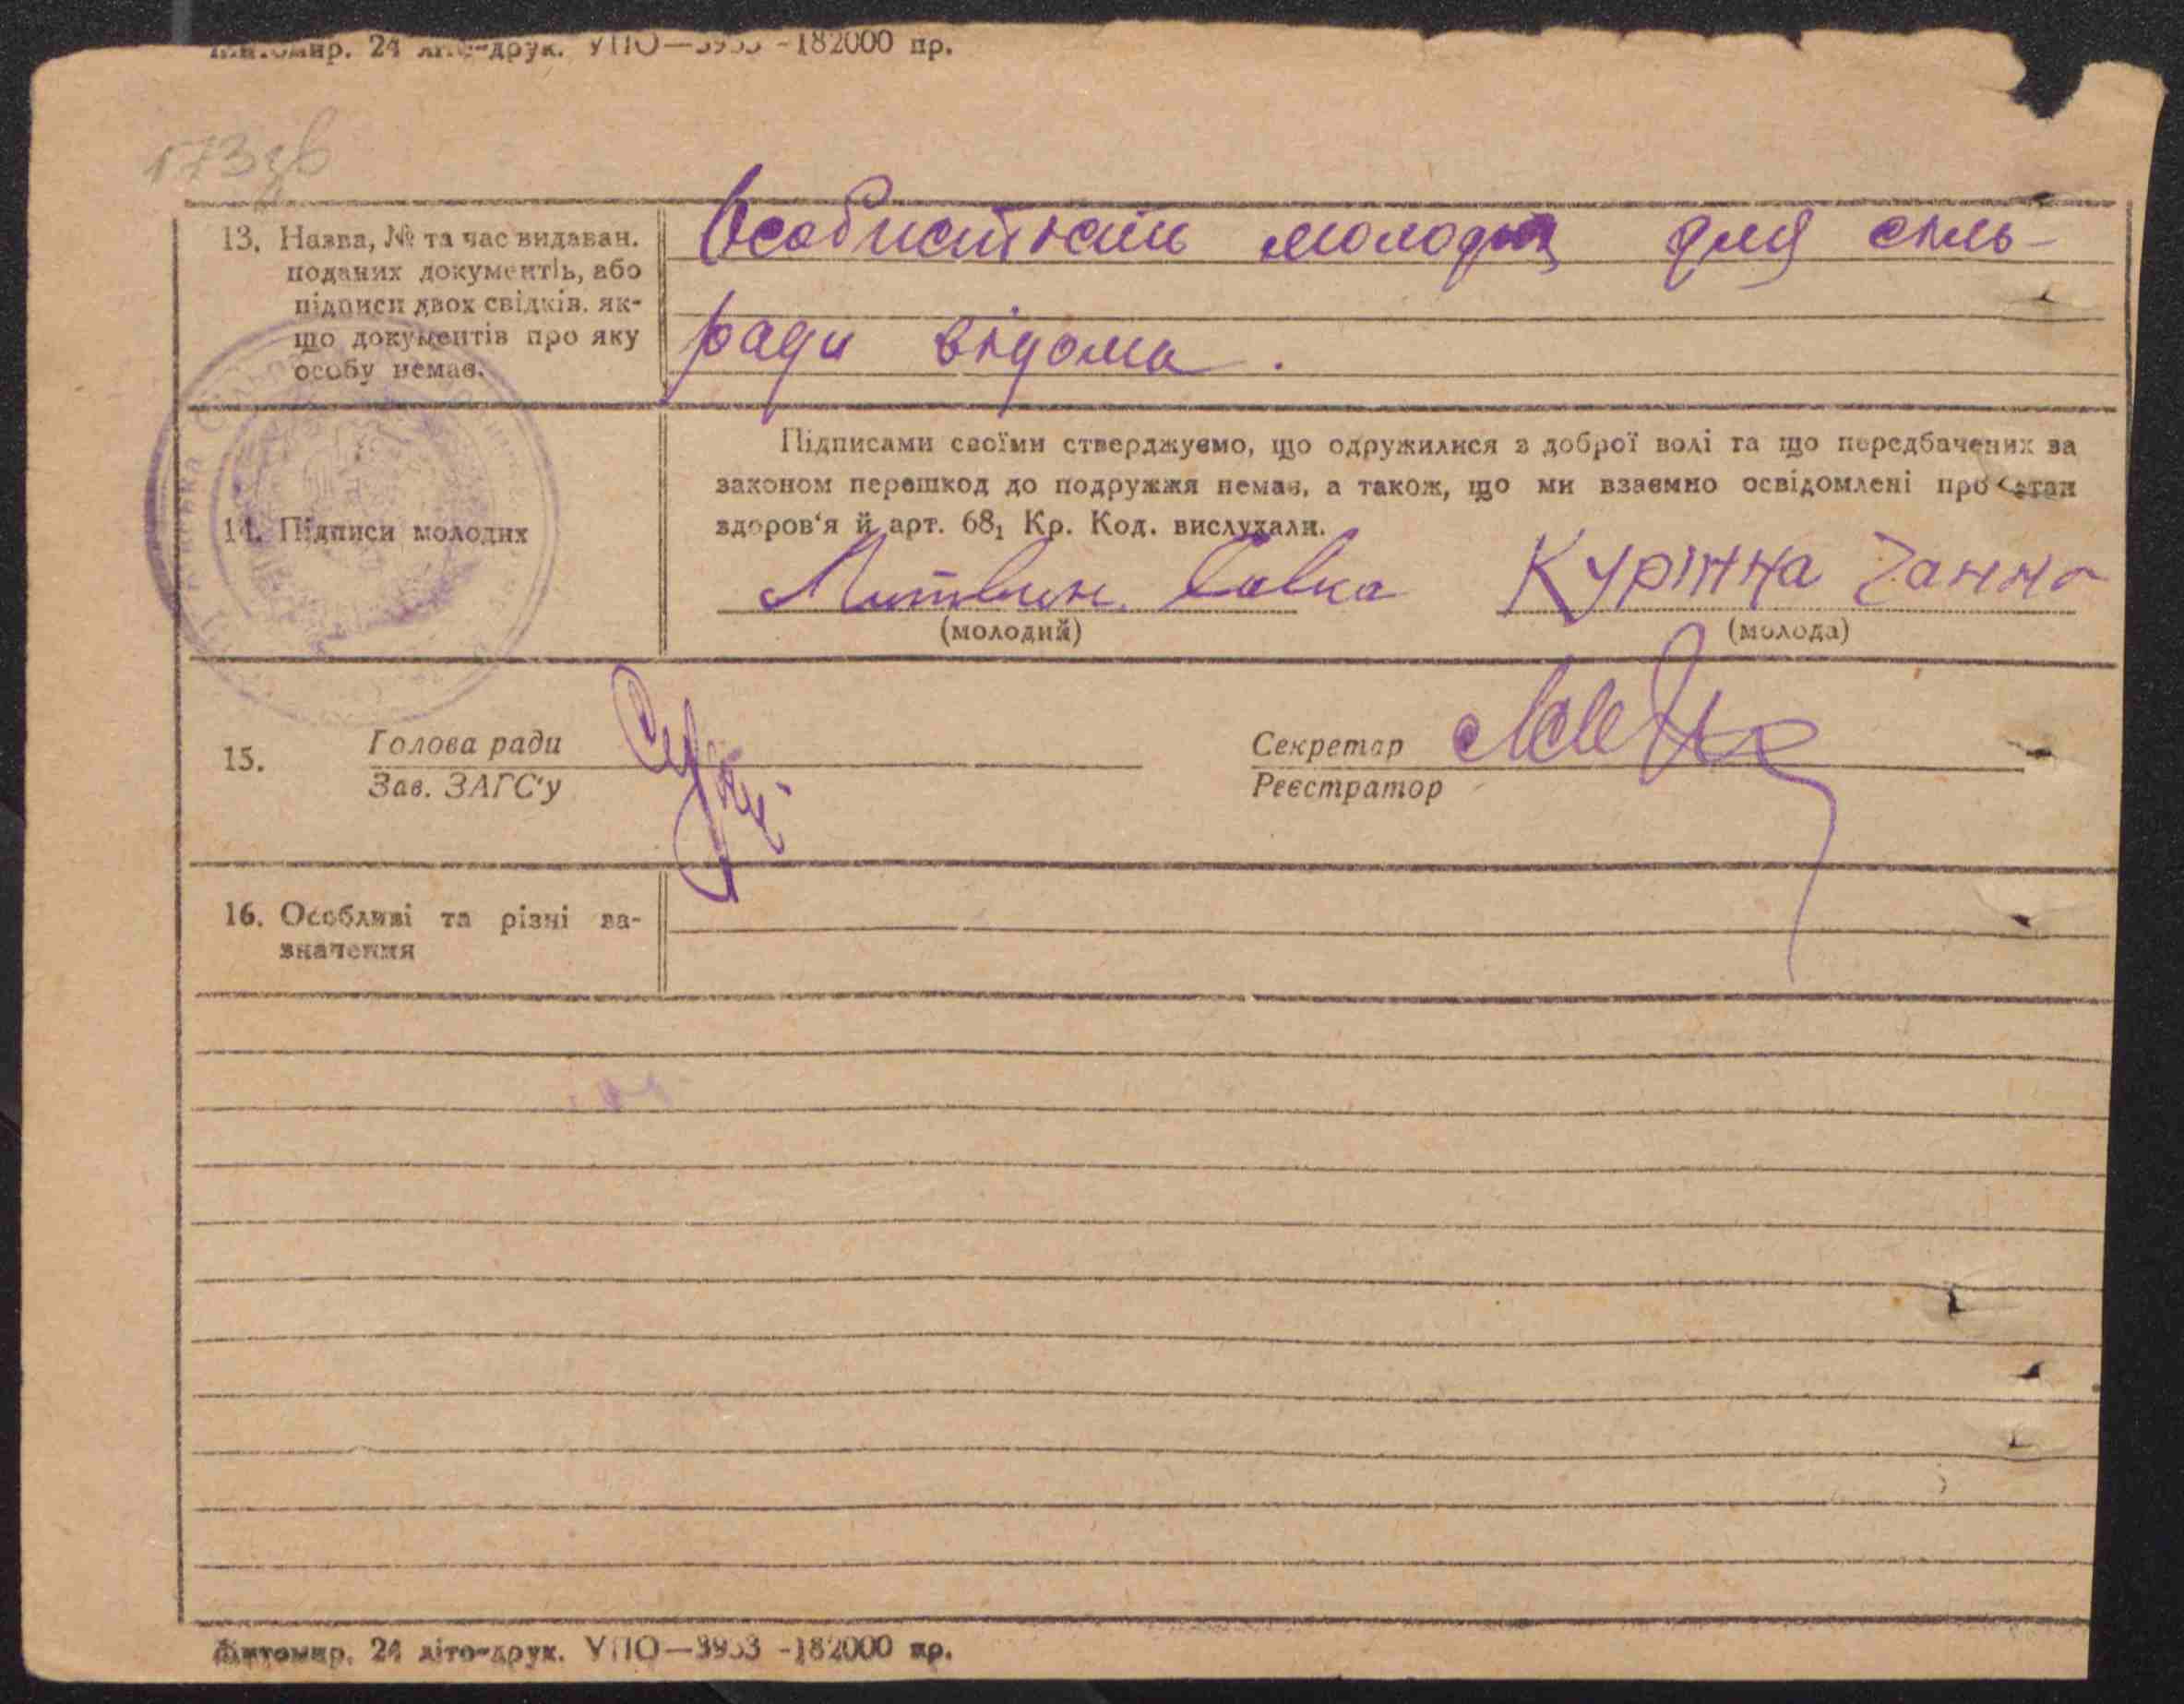 24 літо-друк. УПО—3953 -182000 пр.
173зв
13. Назва, № та час видаван.
поданих документів, або
підписи двох свідків, як-
що документів про яку
особу немає.
Особистість молодих для сіль-
ради відома.
Підписами своїми стверджуємо, що одружилися з доброї волі та що передбачених за
законом перешкод до подружжя немає, а також, що ми взаємно освідомлені про стан
здоров'я й арт. 68₁ Кр. Код. вислухали.
14. Підписи молодих
Литвин Савка Курінна Ганна
(молодий) (молода)
15. Голова ради Секретар
Зав. ЗАГС'у Реєстратор
16. Особливі та різні за-
значення
Житомир. 24 літо-друк. УПО—3953 -182000 пр.